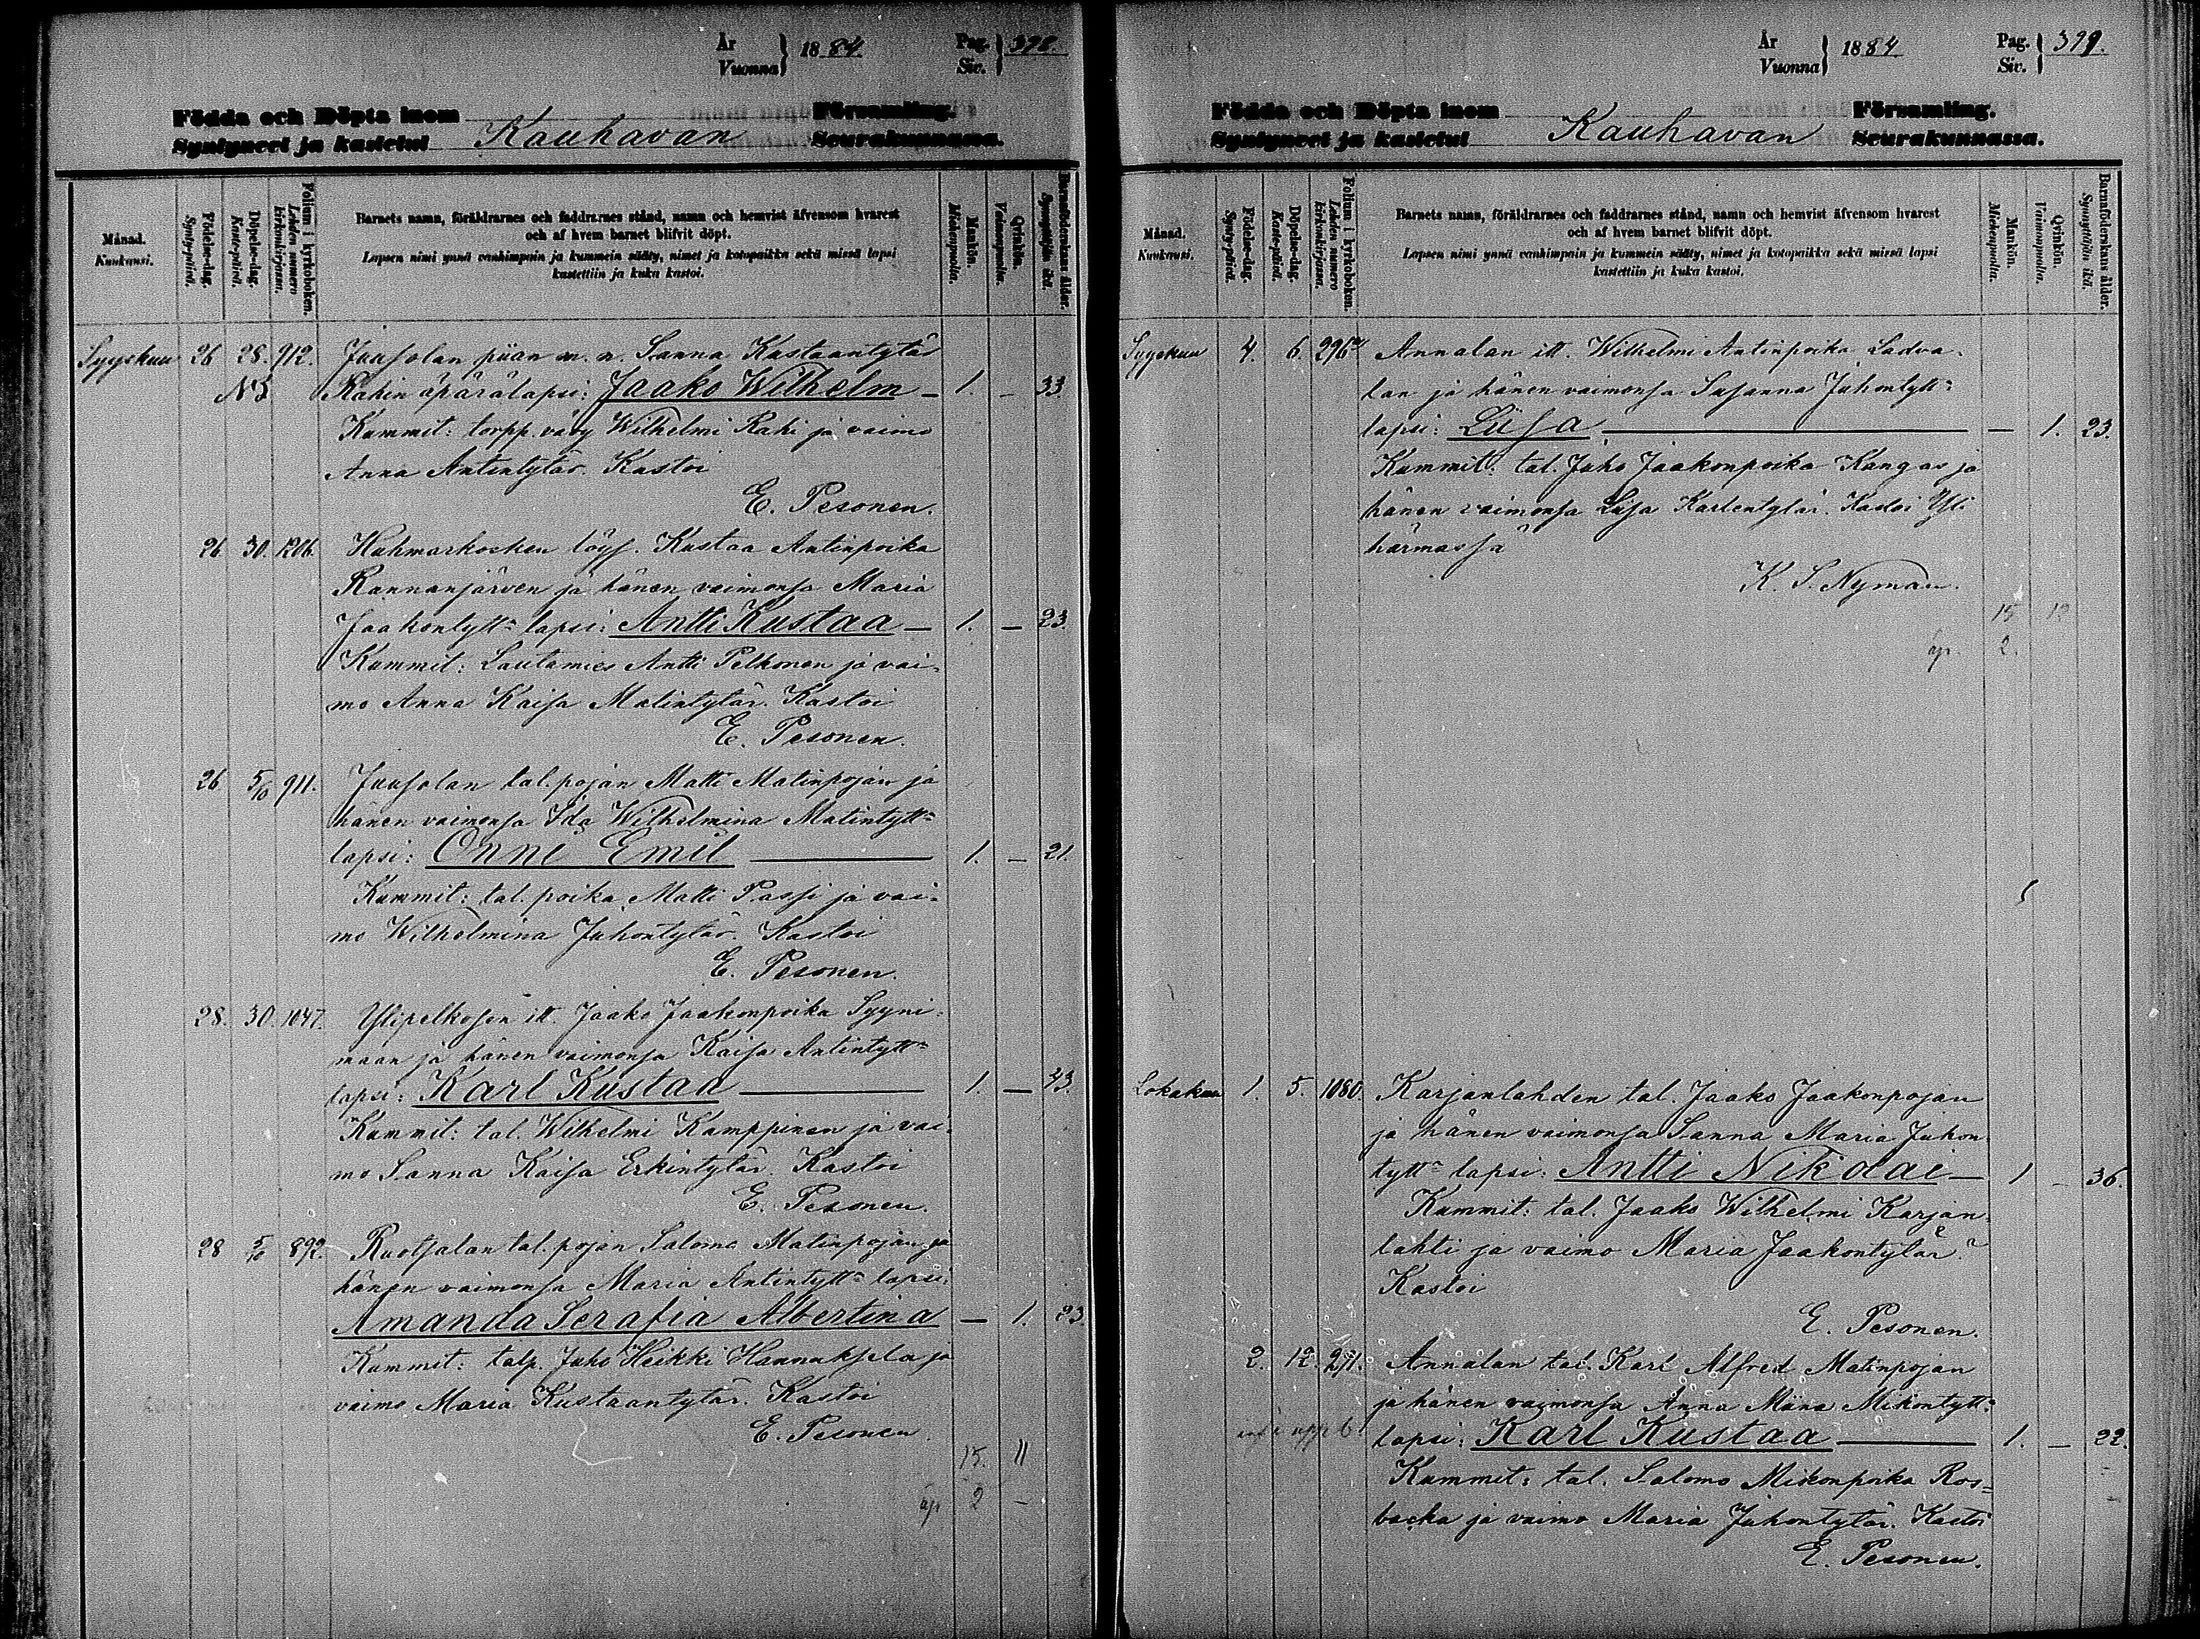 År
Vuonna } 1884. Pag.
Siv. } 398.
Födda och Döpta inom
Syntyneet ja kastetut Kauhavan Församling.
Seurakunnassa.
Månad.
Kuukausi.
Födelse-dag.
Syntypäivä.
Döpelse-dag.
Kastepäivä.
Folium i kyrkoboken.
Lehden numero kirkonkirjassa.
Barnets namn, föräldrarnes och faddrarnes stånd, namn och hemvist äfvensom hvarest
och af hvem barnet blifvit döpt.
Lapsen nimi ynnä vanhimpain ja kummein sääty, nimet ja kotopaikka sekä missä lapsi
kastettiin ja kuka kastoi.
Mankön.
Miehenpuolta.
Qvinkön.
Vaimonpuolta.
Barnaföderskans ålder.
Synnyttäjän ikä.
Syyskuu 26 28. 912. Jaasolan piian n. n. Sanna Kustaantytär
Rahin äpärälapsi: Jaako Wilhelm — 1. — 33.
Kummit: torpp. vävy Wilhelmi Rahi ja vaimo
Anna Antintytär. Kastoi
E. Pesonen.
26. 30. 1206. Huhmarkosken löys. Kustaa Antinpoika
Rannanjärven ja hänen vaimonsa Maria
Jaakontytt= lapsi: Antti Kustaa — 1. — 23.
Kummit: Lautamies Antti Pelkonen ja vai=
mo Anna Kaisa Matintytär. Kastoi
E. Pesonen.
26 5/10 911. Jaasolan tal. pojan Matti Matinpojan ja
hänen vaimonsa Ida Wilhelmina Matintytt=
lapsi: Onni Emil — 1. — 21.
Kummit: tal. poika Matti Passi ja vai=
mo Wilhelmina Juhontytär. Kastoi
E. Pesonen.
28. 30. 1047. Ylipelkosen itt. Jaako Jaakonpoika Syyni=
maan ja hänen vaimonsa Kaisa Antintytt=
lapsi: Karl Kustaa — 1. — 43.
Kummit: tal. Wilhelmi Kamppinen ja vai=
mo Sanna Kaisa Erkintytär. Kastoi
E. Pesonen.
28 5/10 892. Ruotsalan tal. pojan Salomo Matinpojan ja
hänen vaimonsa Maria Antintytt= lapsi:
Amanda Serafia Albertina — 1. 23.
Kummit: talp. Juho Heikki Hannuksela ja
vaimo Maria Kustaantytär. Kastoi
E. Pesonen.
15. 11
äp 2 —
År
Vuonna } 1884 Pag.
Siv. } 399.
Födda och Döpta inom
Syntyneet ja kastetut Kauhavan Församling.
Seurakunnassa.
Månad.
Kuukausi.
Födelse-dag.
Syntypäivä.
Döpelse-dag.
Kastepäivä.
Folium i kyrkoboken.
Lehden numero kirkonkirjassa.
Barnets namn, föräldrarnes och faddrarnes stånd, namn och hemvist äfvensom hvarest
och af hvem barnet blifvit döpt.
Lapsen nimi ynnä vanhimpain ja kummein sääty, nimet ja kotopaikka sekä missä lapsi
kastettiin ja kuka kastoi.
Mankön.
Miehenpuolta.
Qvinkön.
Vaimonpuolta.
Barnaföderskans ålder.
Synnyttäjän ikä.
Syyskuu 4. 6. 296 Annalan itt. Wilhelmi Antinpoika Ladva=
lan ja hänen vaimonsa Susanna Juhontytt=
lapsi: Liisa — 1. 23.
Kummit: tal. Juho Jaakonpoika Kangas ja
hänen vaimonsa Liisa Karlentytär. Kastoi Yli
härmässä
K. S. Nyman.
15 12
äp. 2.
Lokakuu 1. 5. 1080. Karjanlahden tal. Jaako Jaakonpojan
ja hänen vaimonsa Sanna Maria Juhon
tytt= lapsi: Antti Nikolai — 1 — 36.
Kummit: tal. Jaako Wilhelmi Karjan
lahti ja vaimo Maria Jaakontytär.
Kastoi
E. Pesonen.
2. 12. 271. Annalan tal. Karl Alfred Matinpojan
ja hänen vaimonsa Anna Miina Mikontytt=
lapsi: Karl Kustaa — 1. — 22.
Kummit: tal. Salomo Mikonpoika Ros=
backa ja vaimo Maria Juhontytär. Kastoi
E. Pesonen.